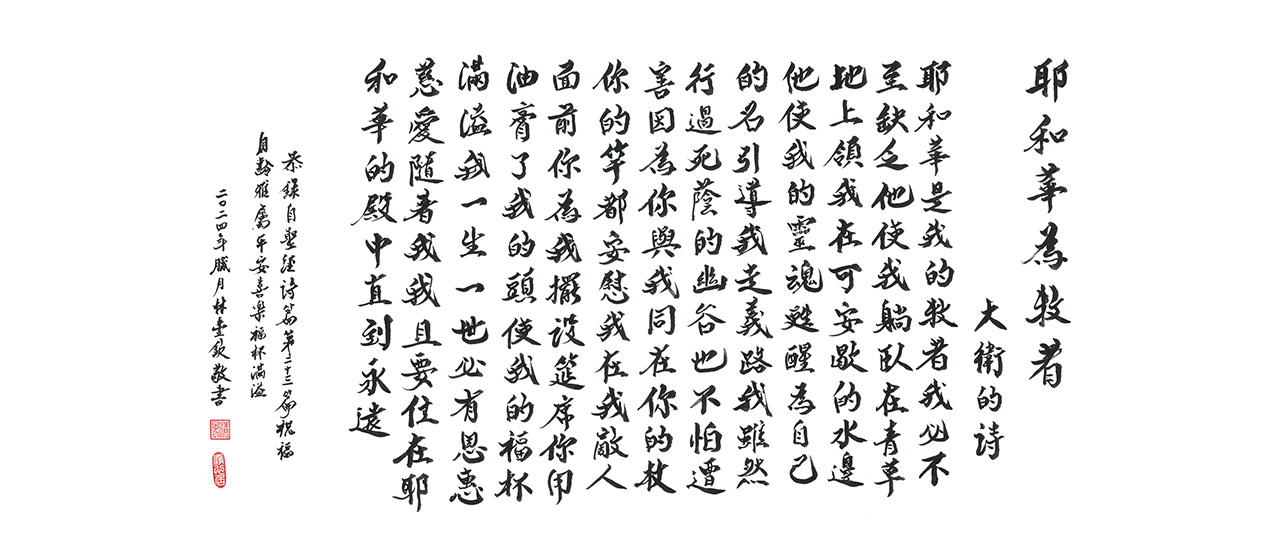 耶和華為牧者
大衛的詩
耶和華是我的牧者我必不
至缺乏他使我躺臥在青草
地上領我在可安歇的水邊
他使我的靈魂甦醒為自己
的名引導我走義路我雖然
行過死蔭的幽谷也不怕遭
害因為你與我同在你的杖
你的竿都安慰我在我敵人
面前你為我擺設筵席你用
油膏了我的頭使我的福杯
滿溢我一生一世必有恩惠
慈愛隨着我我且要住在耶
和華的殿中直到永遠
恭錄自聖經詩篇第二十三篇祝福
齡雅屬平安喜樂福杯滿溢
二〇二四年臘月林欽敬書